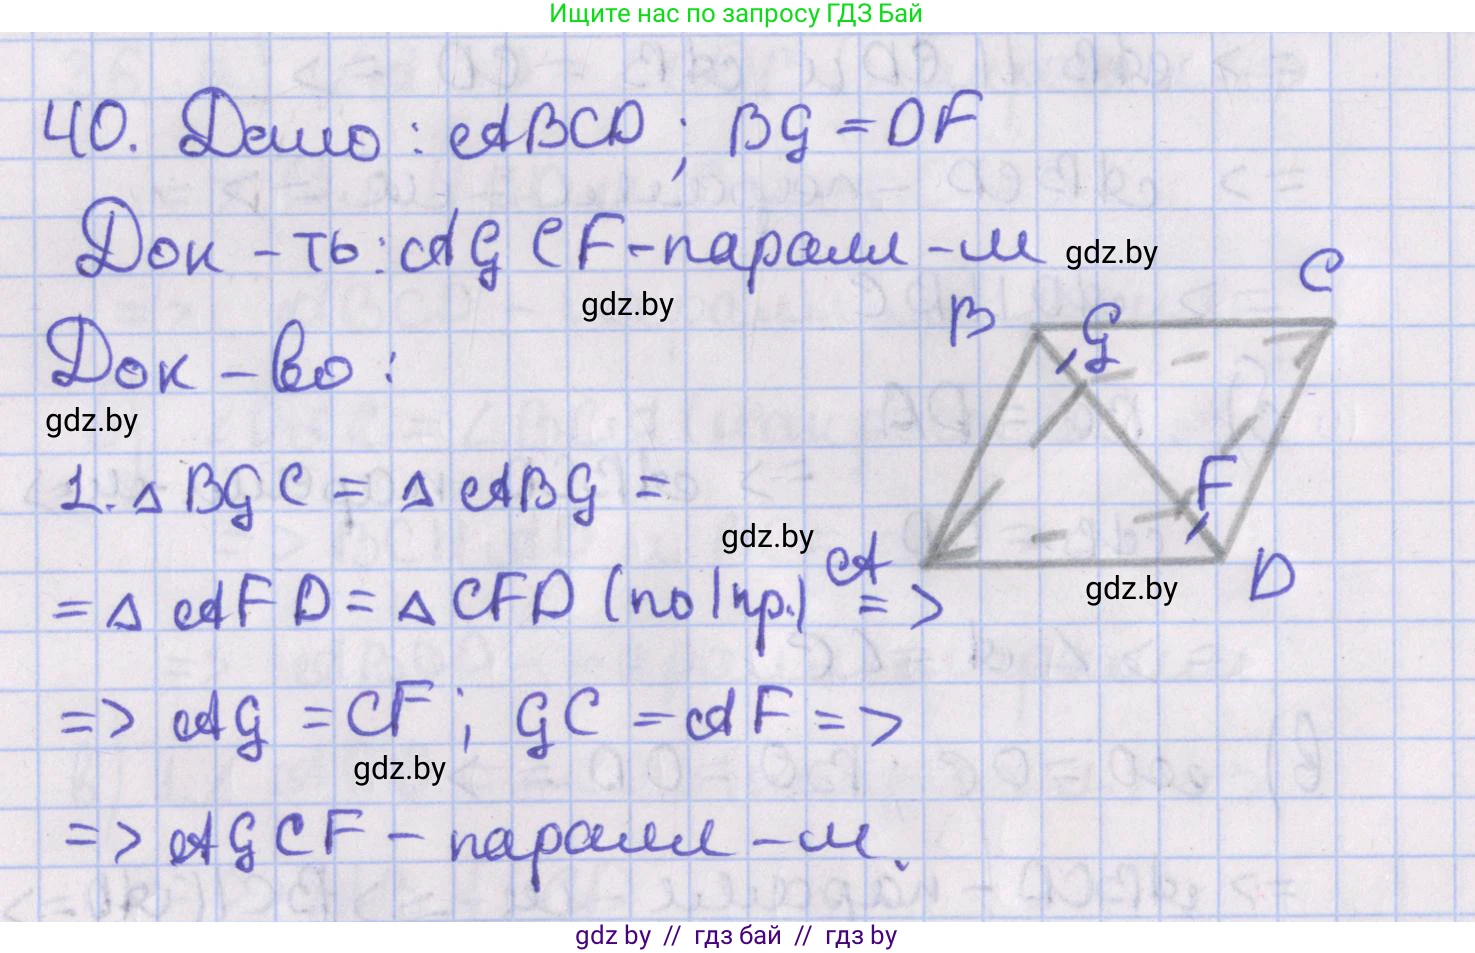 Ищите нас по запросу ГДЗ Бай
40. Дано: ABCD; BG = DF
Док-ть: AGCF-паралл-м
gdz.by
gdz.by
Док-во:
gdz.by
B G C
1. △ BGC = △ ABG =
gdz.by
F
A D
gdz.by
= △ AFD = △ CFD (по 1 пр.) =>
=> AG = CF; GC = AF =>
gdz.by
=> AGCF - паралл-м.
gdz by // гдз бай // гдз by